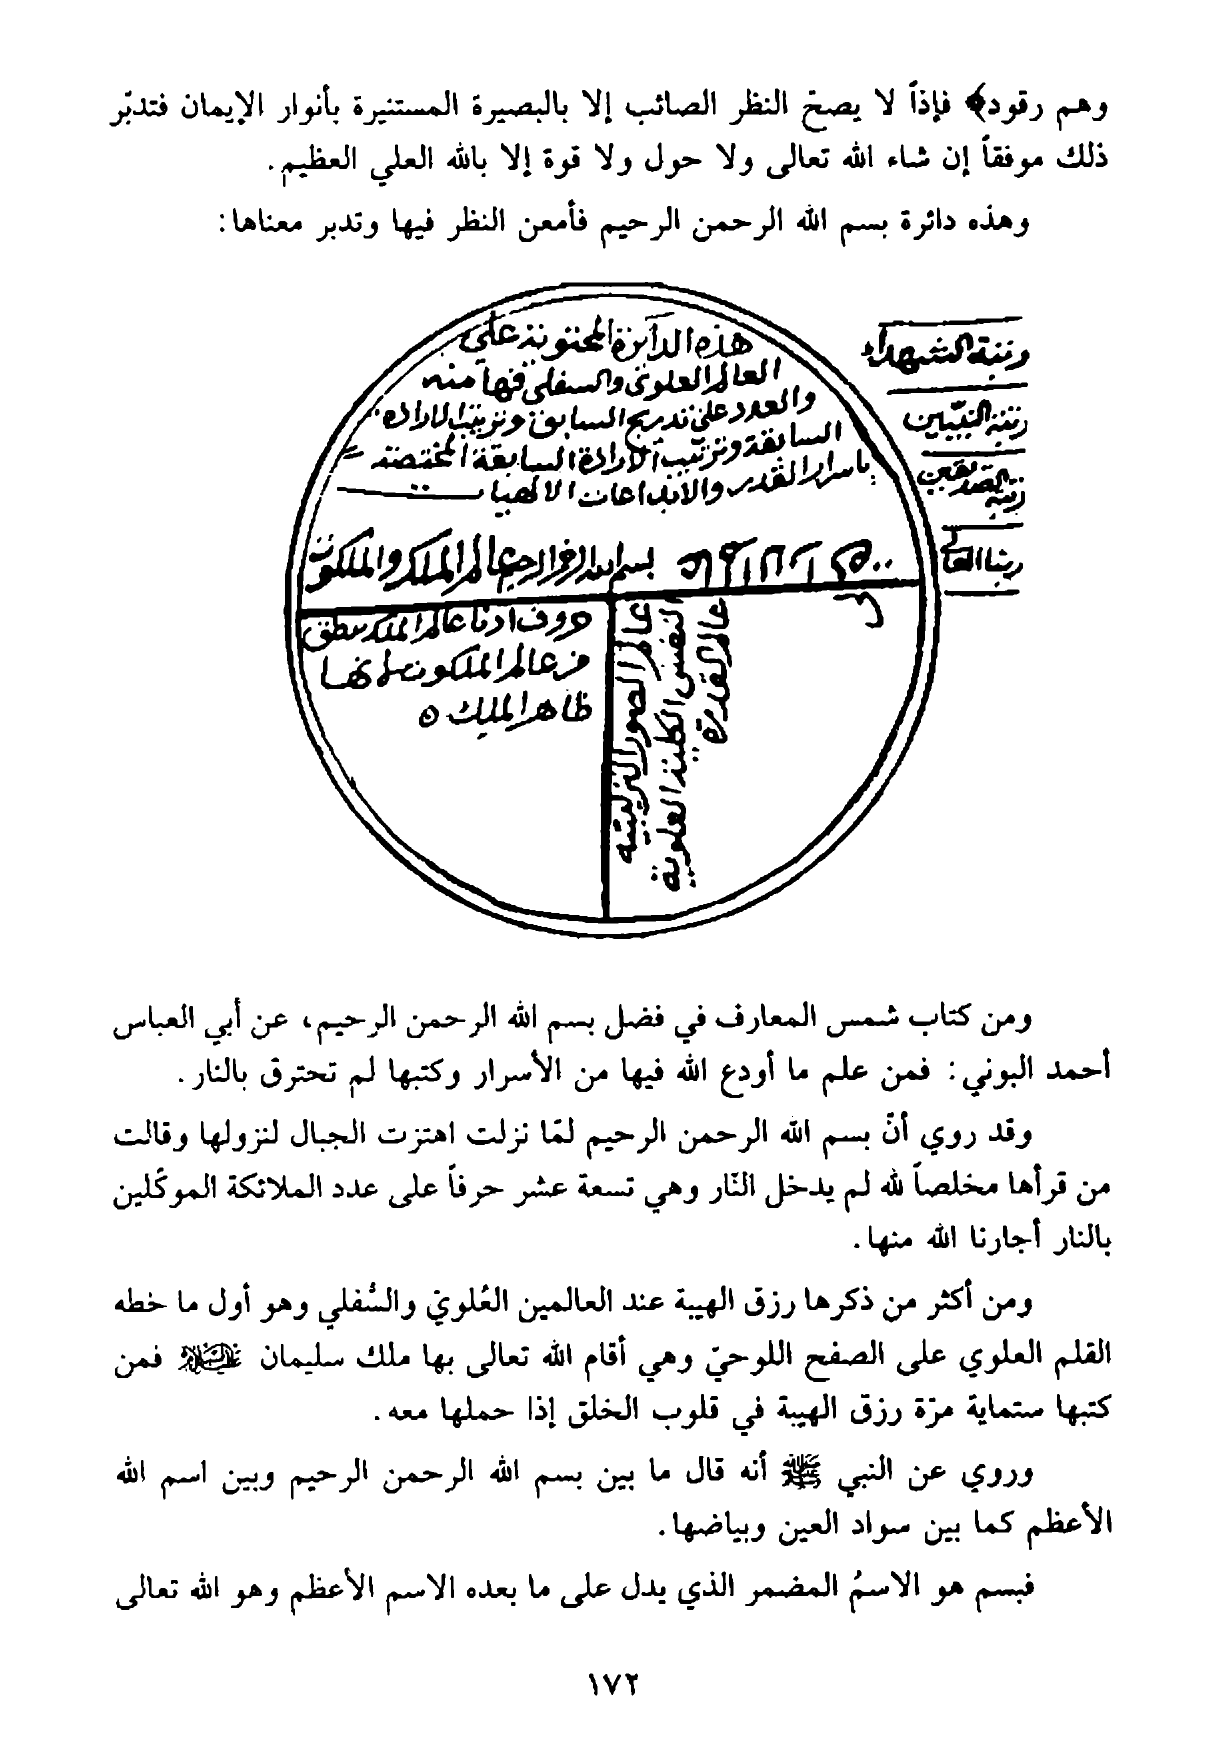 وهم رقود﴾ فإذاً لا يصحّ النظر الصائب إلا بالبصيرة المستنيرة بأنوار الإيمان فتدبّر
ذلك موفقاً إن شاء الله تعالى ولا حول ولا قوة إلا بالله العلي العظيم.
وهذه دائرة بسم الله الرحمن الرحيم فأمعن النظر فيها وتدبر معناها:
هذه الدآئرة المحتوية على
العالم العلوي والسفلي فيها منه
والعدد على تدريج السابق وترتيب الارادة
السابقة وترتيب الارادة السابقة المختصة
باسرار القدر والابداعات الالهيا
بسم الله الرحمن الرحيم عالم الملك والملكوت
حروف ادنا عالم الملك
من عالم الملكوت
ظاهر الملك
عالم الصور التركيبية
النفس الكلية العلوية
عالم القدرة
رتبة الشهداء
رتبة النبيّين
رتبة الصديقين
ومن كتاب شمس المعارف في فضل بسم الله الرحمن الرحيم، عن أبي العباس
أحمد البوني: فمن علم ما أودع الله فيها من الأسرار وكتبها لم تحترق بالنار.
وقد روي أنّ بسم الله الرحمن الرحيم لمّا نزلت اهتزت الجبال لنزولها وقالت
من قرأها مخلصاً لله لم يدخل النّار وهي تسعة عشر حرفاً على عدد الملائكة الموكّلين
بالنار أجارنا الله منها.
ومن أكثر من ذكرها رزق الهيبة عند العالمين العُلويّ والسُّفلي وهو أول ما خطه
القلم العلوي على الصفح اللوحيّ وهي أقام الله تعالى بها ملك سليمان عليه السلام فمن
كتبها ستماية مرّة رزق الهيبة في قلوب الخلق إذا حملها معه.
وروي عن النبي ﷺ أنه قال ما بين بسم الله الرحمن الرحيم وبين اسم الله
الأعظم كما بين سواد العين وبياضها.
فبسم هو الاسمُ المضمر الذي يدل على ما بعده الاسم الأعظم وهو الله تعالى
١٧٢